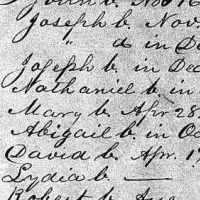 John b. Nov 16
Joseph b. Nov.
" d in De
Joseph b. in Dec
Nathaniel b. in
Mary b. Apr 28,
Abigail b. in Oc
David b. Apr. 17
Lydia b. —
Robert b. Aug